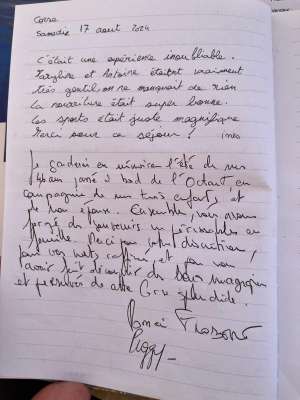 Corse
Samedie 17 aout 2024
C'était une expérience inoubliable.
et Antoine étaitent vraiment
très gentil on ne manquait de rien
la nourriture était super bonne.
Les spots était juste magnifique
Merci pour ce séjour ! Ines
Je garderai en mémoire l'été de mes
46 ans passé à bord de l'Octant, en
compagnie de mes trois enfants et
de mon épouse. Ensemble, nous avons
forgé des souvenirs impérissables en
famille. Merci pour votre discrétion,
pour vos mets raffinés, et pour nous
avoir fait découvrir des lieux magiques
et préservés de cette Corse splendide.
Merci